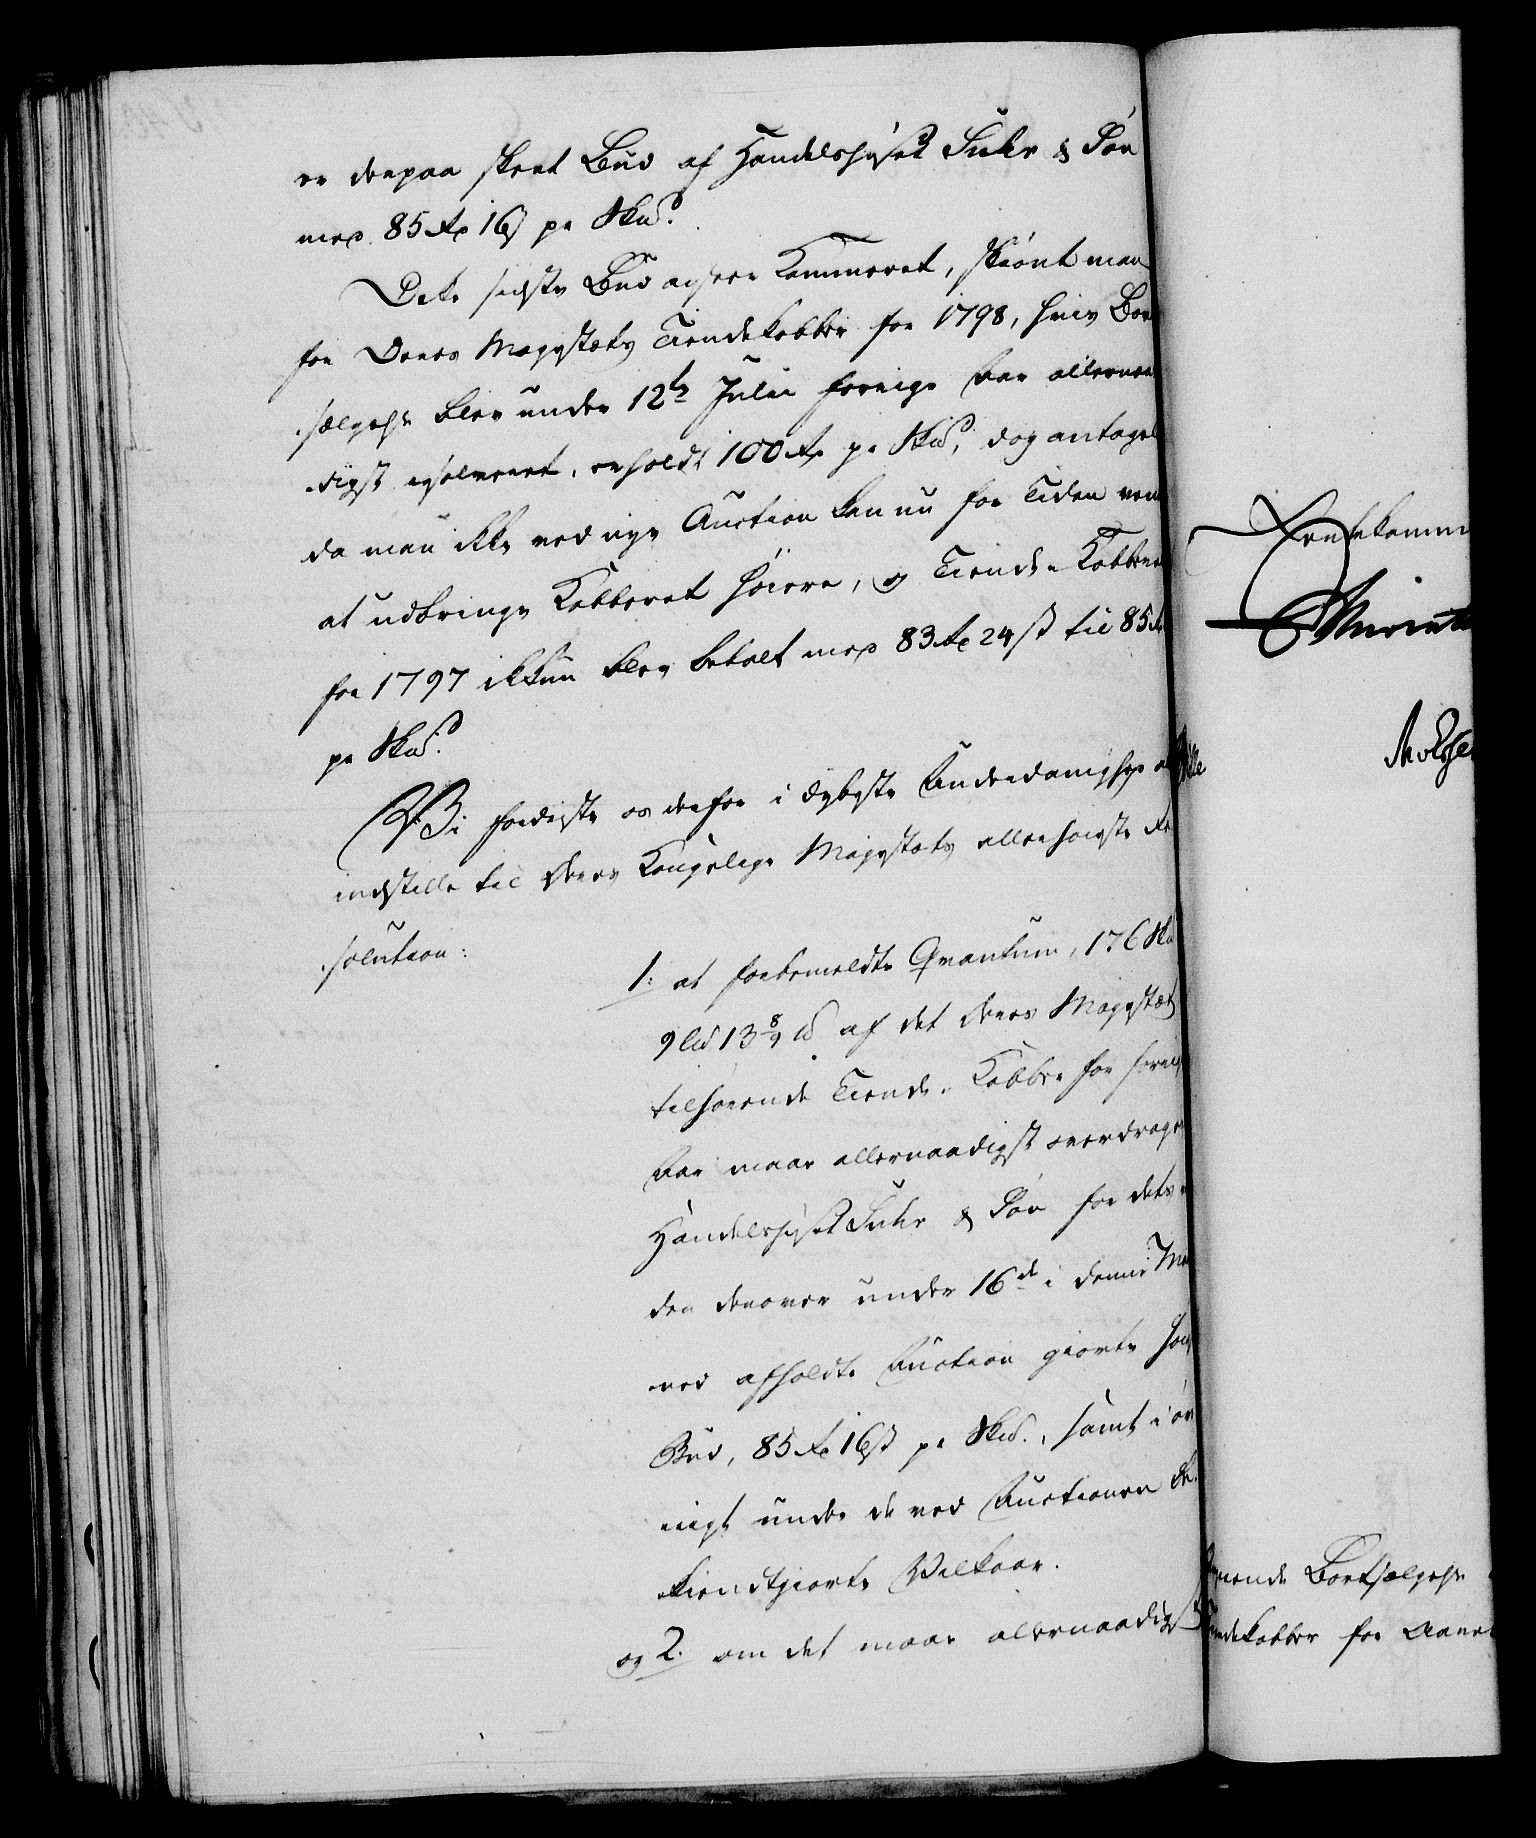 er derpaa skeet Bud af Handelshuset Suhr & Søn
med 85 Rd 16 s pr Sk℔.
Dete sidste Bud agter Kammeret, skiønt man
for Deres Majestæts Tiendekobber for 1798, hvis Bort
sælgelse blev under 12te Julii forrige Aar allernaa
digst approberet, erholdt 100 Rd pr Sk℔, dog antagel
da man ikke ved nye Auction kan nu for Tiden ven
at udbringe Kobberet høiere, og Tiende-Kobberet
for 1797 ikkun blev betalt med 83 Rd 24 s til 85 Rd
pr Sk℔.
Vi fordriste os derfor i dybeste Underdanighed al
indstille til Deres Kongelige Majestæts allerhøieste Re
solution:
1. at forbemeldte Qvantum, 176 Sk℔
9 L℔ 13 8/9 ℔ af det Deres Majestæt
tilhørende Tiende-Kobber for forrige
Aar maae allernaadigst overdrages
Handelshuset Suhr & Søn for dets
den derover under 16de i denne Maa
ned afholdte Auction giorte høie
Bud, 85 Rd 16 s pr Sk℔, samt i øv
rigt under de ved Auctionen be
kiendtgiorte Vilkaar.
og 2. om det maae allernaadigst
Rentekamm
ende Bortsælgelse
Tiendekobber for Aaret